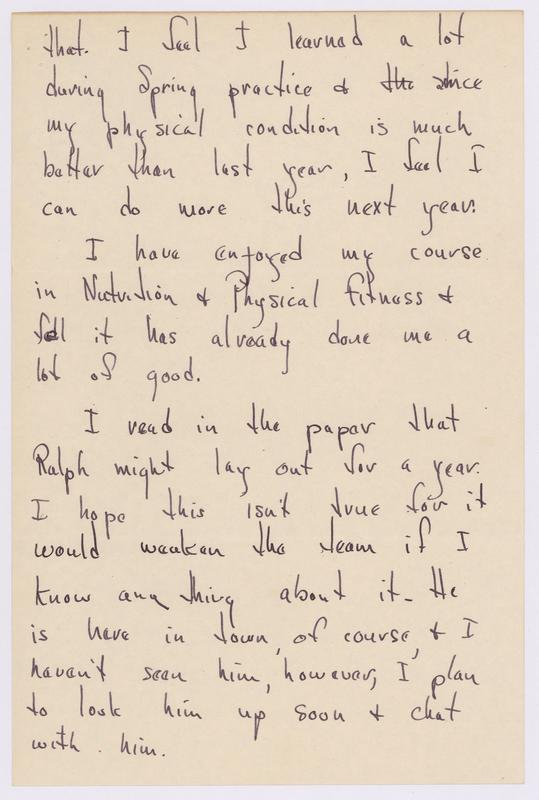 that. I feel I learned a lot
during Spring practice & the since
my physical condition is much
better than last year, I feel I
can do more this next year.
I have enjoyed my course
in Nutrition & Physical fitness &
feel it has already done me a
lot of good.
I read in the paper that
Ralph might lay out for a year.
I hope this isn't true for it
would weaken the team if I
know any thing about it. He
is here in town, of course, & I
haven't seen him, however, I plan
to look him up soon & chat
with him.